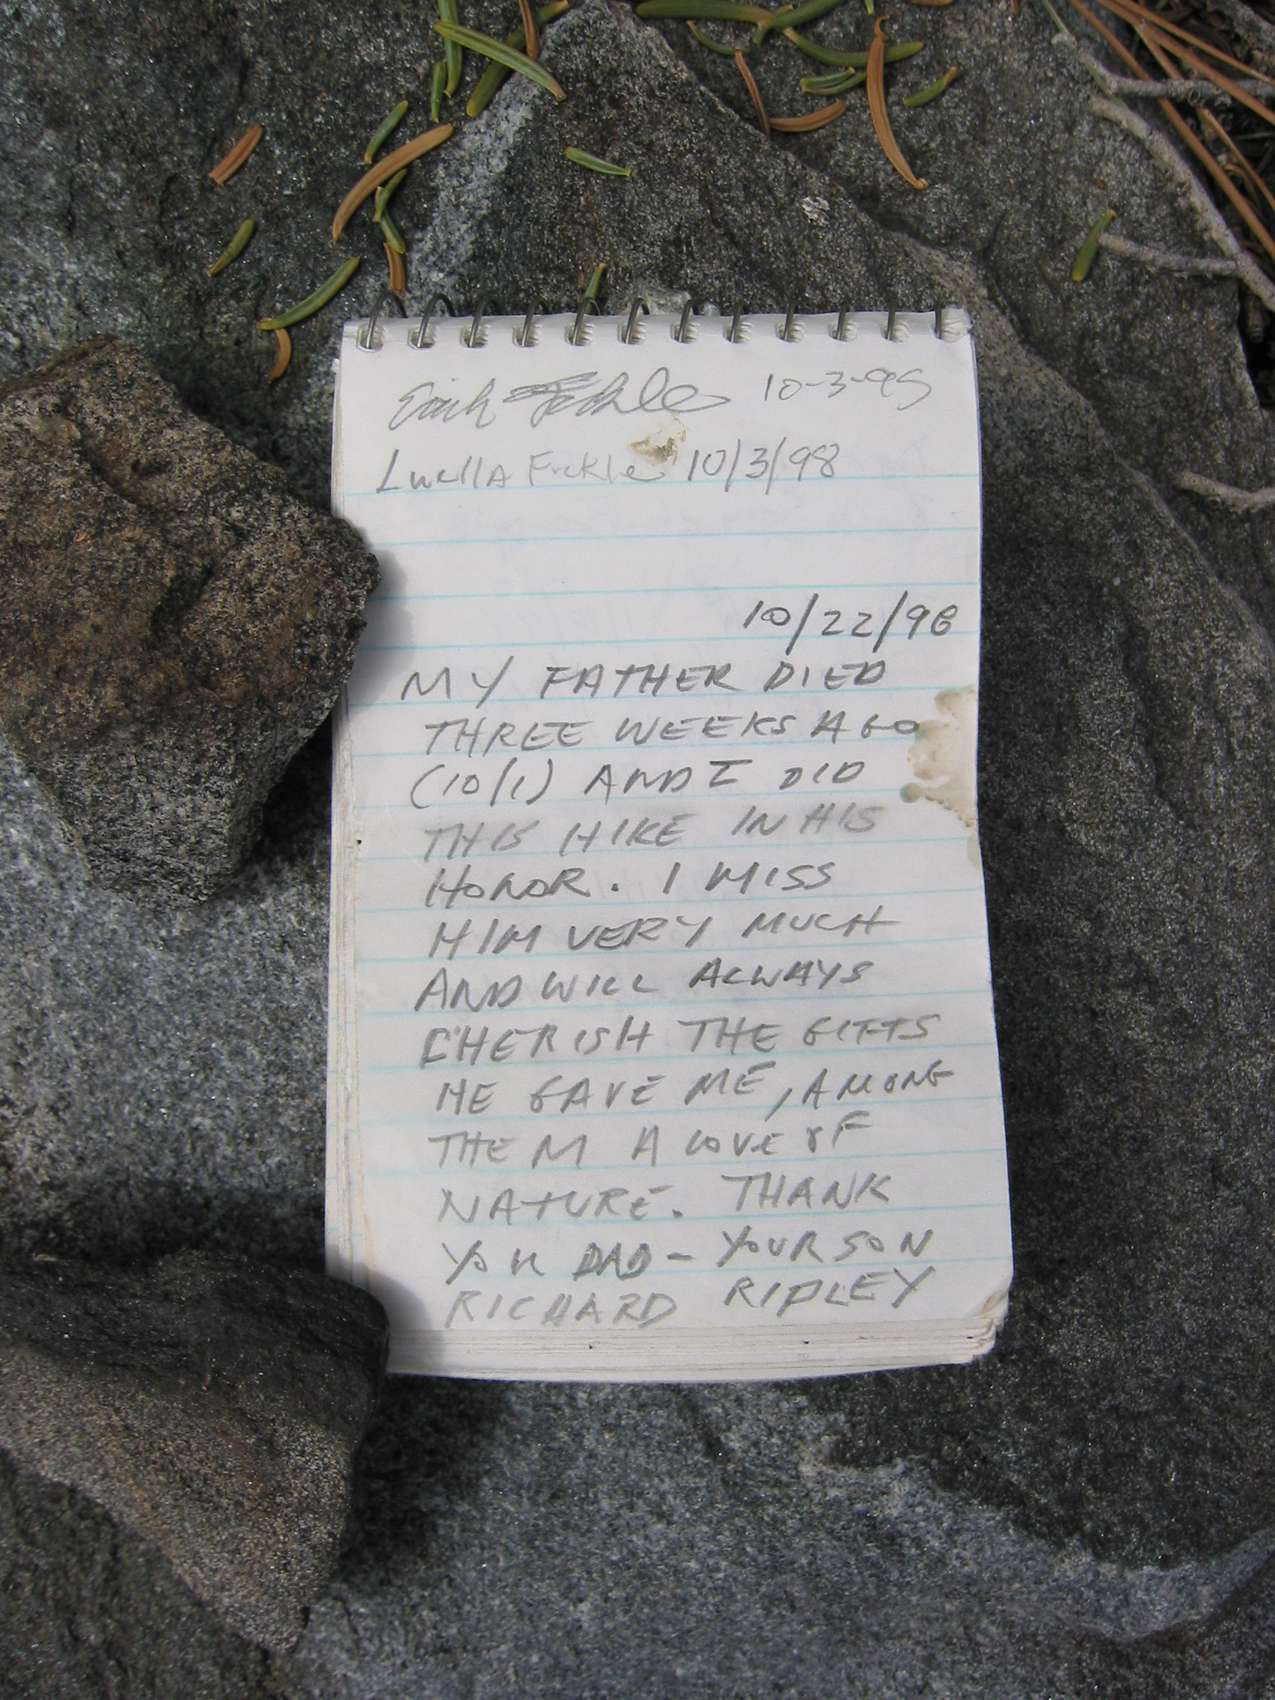 Erich Fickle 10-3-98
Luella Fickle 10/3/98
10/22/98
MY FATHER DIED
THREE WEEKS AGO
(10/1) AND I DID
THIS HIKE IN HIS
HONOR. I MISS
HIM VERY MUCH
AND WILL ALWAYS
CHERISH THE GIFTS
HE GAVE ME, AMONG
THEM A LOVE OF
NATURE. THANK
YOU DAD - YOUR SON
RICHARD RIPLEY